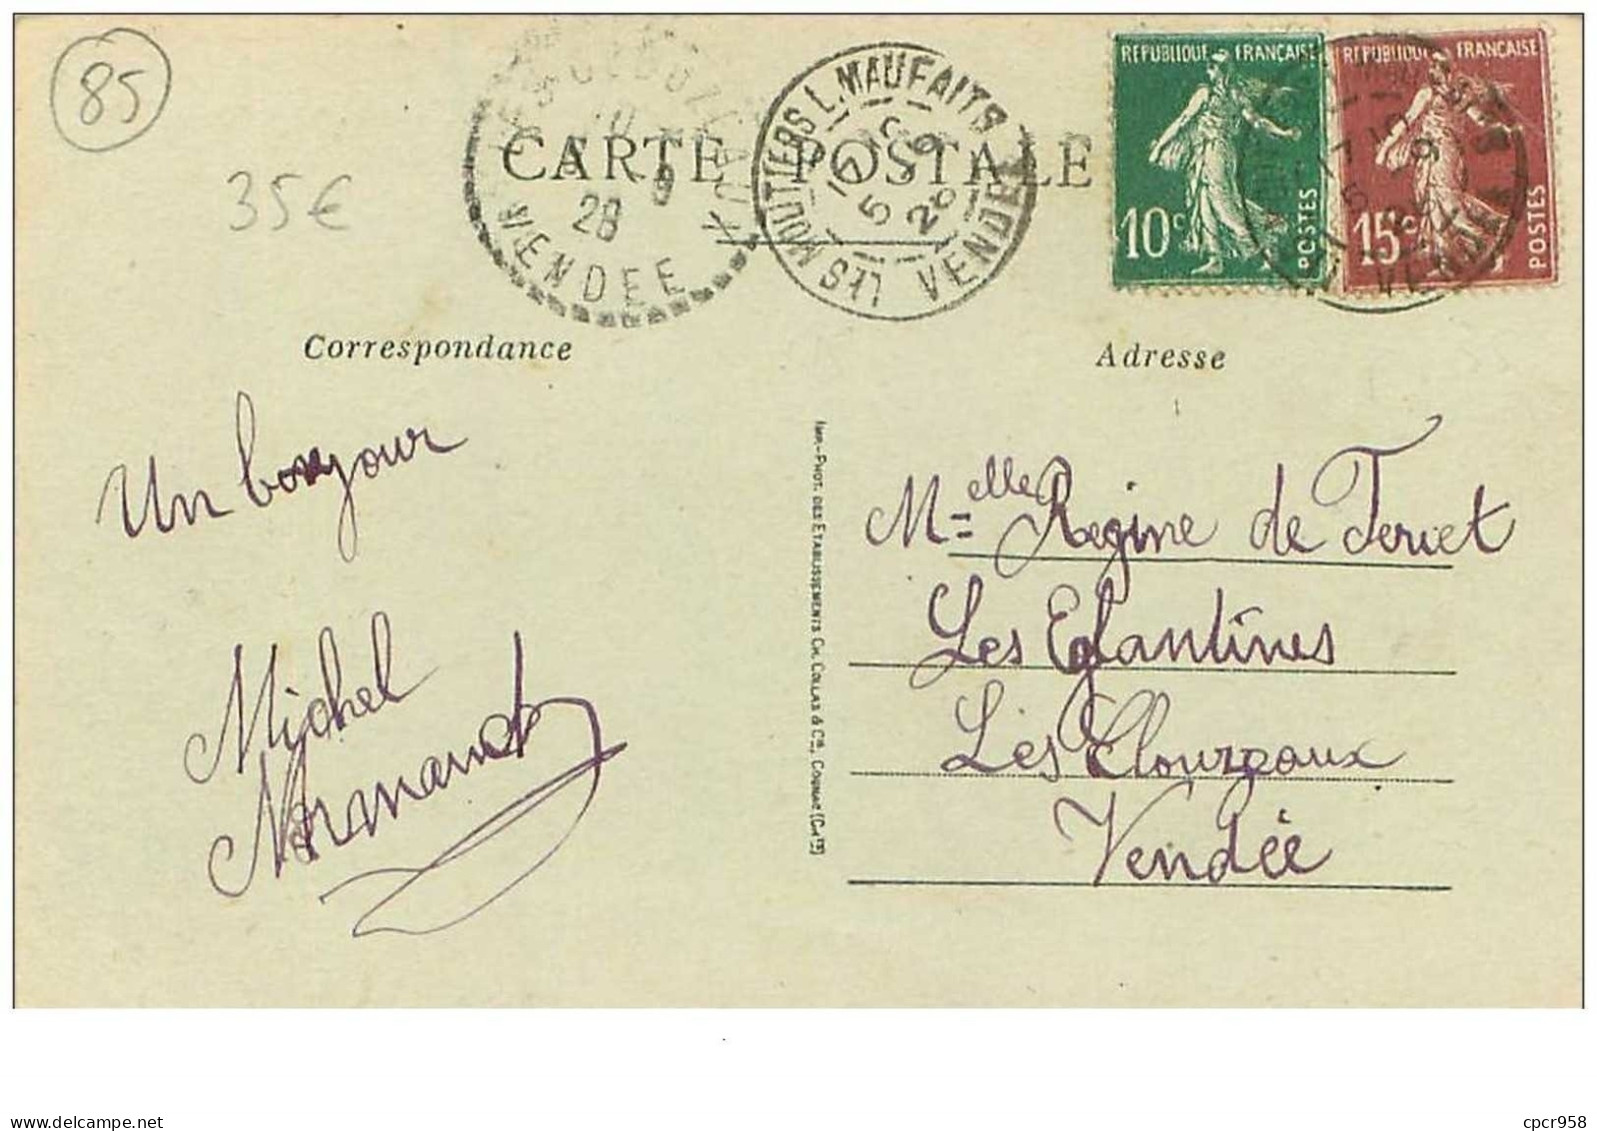 85
35€
CARTE POSTALE
LES CLOUZEAUX
VENDEE
28
LES MOUTIERS L.MAUFAITS
17 15
5 - 9
28
VENDEE
REPUBLIQUE FRANÇAISE
10c
POSTES
REPUBLIQUE FRANÇAISE
15c
POSTES
Correspondance
Adresse
Un bonjour
Michel
Normand
IMP.-PHOT. DES ETABLISSEMENTS CH. COLLAS & Cie, COGNAC (Chte)
Melle Regine de Teruet
Les Eglantines
Les Clouzeaux
Vendée
www.delcampe.net
cpcr958